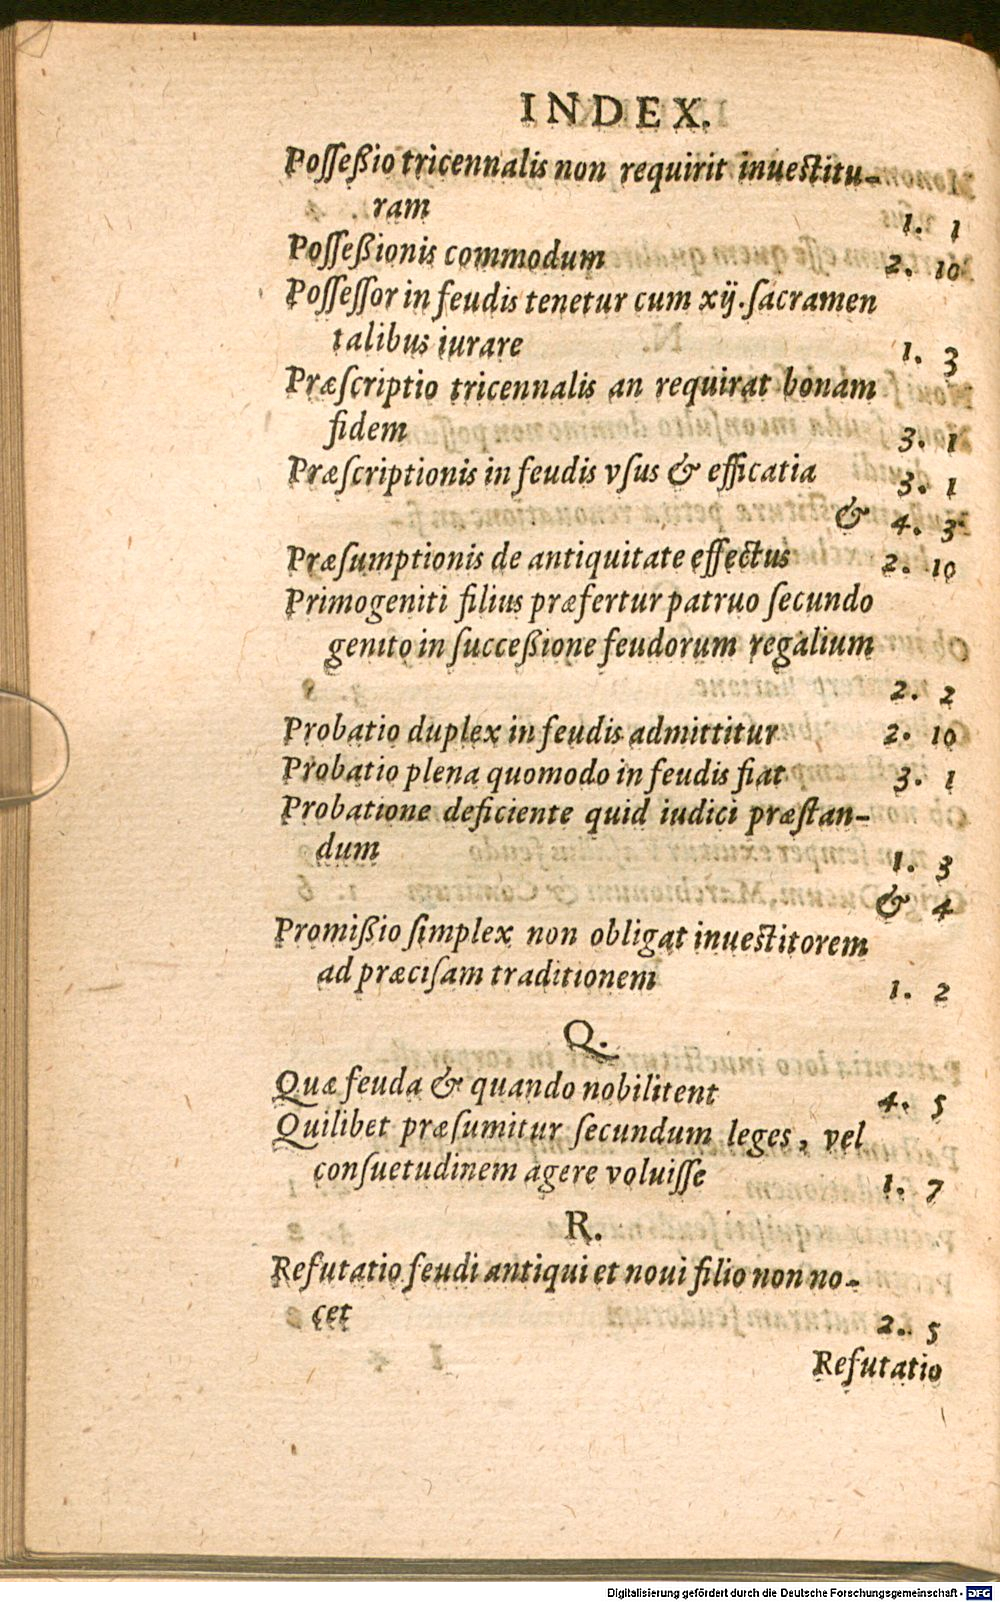 INDEX.
Poſſeßio tricennalis non requirit inueſtitu-
ram 1. 1
Poſſeßionis commodum 2. 10
Poſſeſſor in feudis tenetur cum xij. ſacramen
talibus iurare 1. 3
Præſcriptio tricennalis an requirat bonam
fidem 3. 1
Præſcriptionis in feudis vſus & efficatia 3. 1
& 4. 3
Præſumptionis de antiquitate effectus 2. 10
Primogeniti filius præfertur patruo ſecundo
genito in ſucceßione feudorum regalium
2. 2
Probatio duplex in feudis admittitur 2. 10
Probatio plena quomodo in feudis fiat 3. 1
Probatione deficiente quid iudici præſtan-
dum 1. 3
& 4
Promißio ſimplex non obligat inueſtitorem
ad præciſam traditionem 1. 2
Q.
Quæ feuda & quando nobilitent 4. 5
Quilibet præſumitur ſecundum leges, vel
conſuetudinem agere voluiſſe 1. 7
R.
Refutatio feudi antiqui et noui filio non no-
cet 2. 5
Refutatio
Digitalisierung gefördert durch die Deutsche Forschungsgemeinschaft - DFG